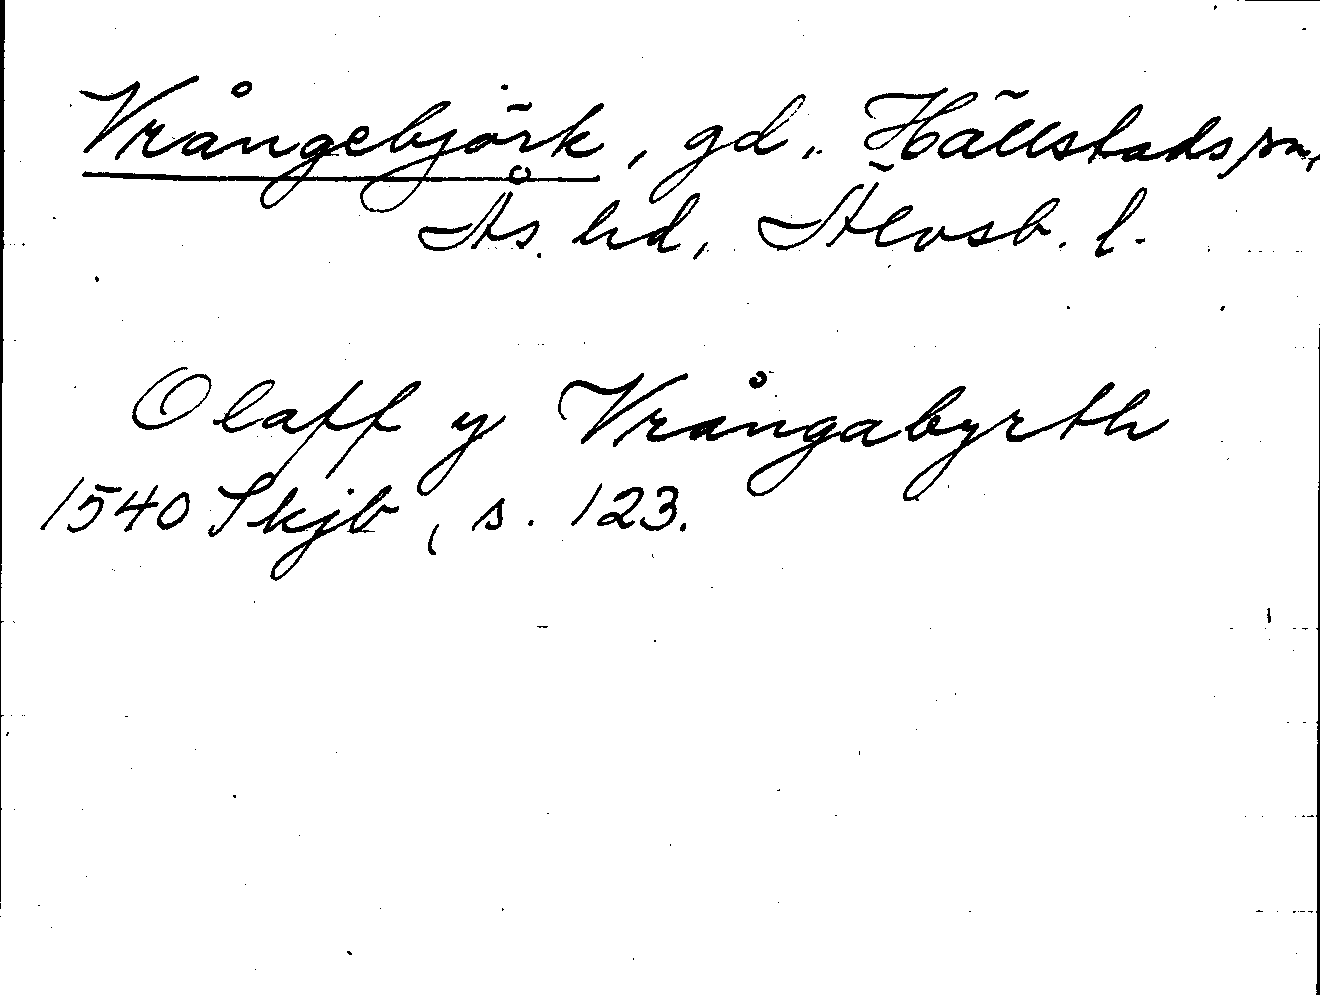 Vrångebjörk, gd, Hällstads sn,
Ås hd, Älvsb. l.
Olaff y Vrångabyrth
1540 Skjb, s. 123.